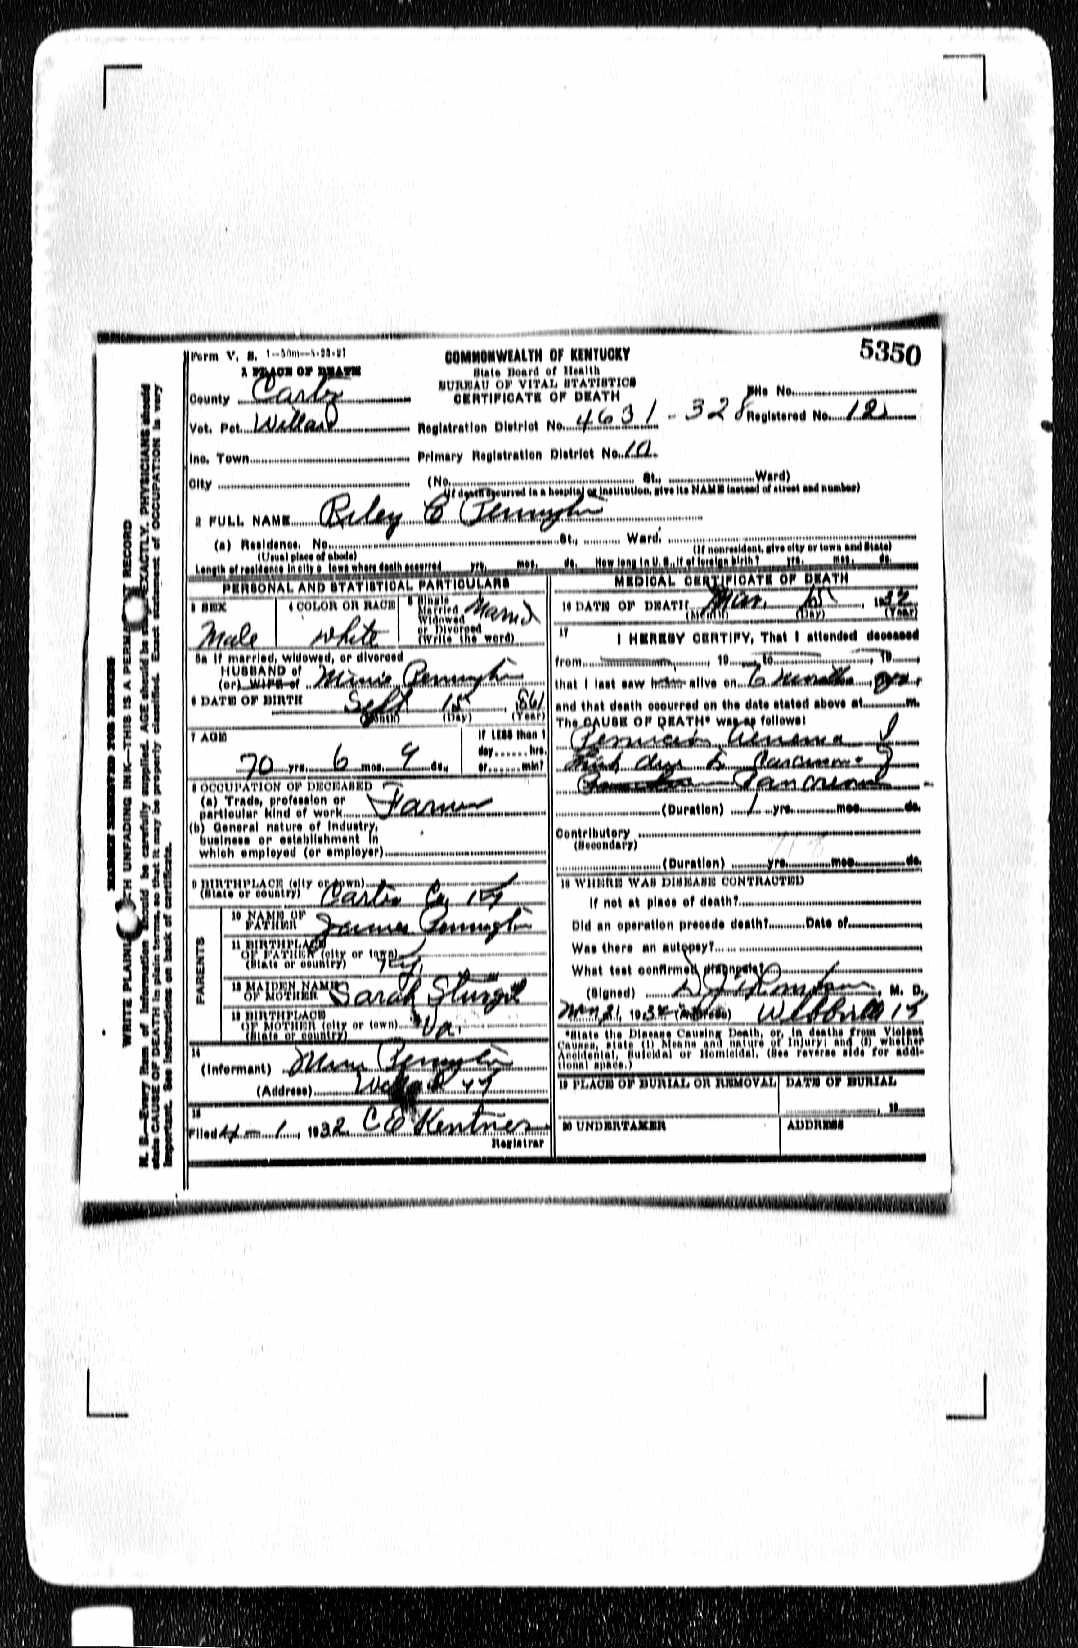 Form V. S. 1-50m-5-23-21
COMMONWEALTH OF KENTUCKY
State Board of Health
BUREAU OF VITAL STATISTICS
CERTIFICATE OF DEATH
5350
1 PLACE OF DEATH
County Carter
File No.
Vot. Pct. Willard
Registration District No. 4631-328
Registered No. 12
Inc. Town
Primary Registration District No.
City
(No. St., Ward)
(If death occurred in a hospital or institution, give its NAME instead of street and number)
2 FULL NAME Riley C Pennington
(a) Residence. No. St., Ward.
(Usual place of abode)
(If nonresident, give city or town and State)
Length of residence in city or town where death occurred yrs. mos. ds. How long in U. S., if of foreign birth? yrs. mos. ds.
PERSONAL AND STATISTICAL PARTICULARS
3 SEX Male
4 COLOR OR RACE white
5 Single Married Widowed or Divorced (Write the word) Married
5a If married, widowed, or divorced
HUSBAND of
(or) WIFE of Pennington
6 DATE OF BIRTH Sept 15, 1861
(Month) (Day) (Year)
7 AGE
70 yrs. 6 mos. 9 ds.
If LESS than 1
day hrs.
or min?
8 OCCUPATION OF DECEASED
(a) Trade, profession or
particular kind of work Farmer
(b) General nature of industry,
business or establishment in
which employed (or employer)
9 BIRTHPLACE (city or town)
(State or country) Carter Co Ky
PARENTS
10 NAME OF
FATHER James Pennington
11 BIRTHPLACE
OF FATHER (city or town)
(State or country) Ky
12 MAIDEN NAME
OF MOTHER Sarah Sturgill
13 BIRTHPLACE
OF MOTHER (city or town) Va.
(State or country)
14
(Informant) Pennington
(Address) Willard Ky
15
Filed 4-1, 1932 C E Kentner
Registrar
MEDICAL CERTIFICATE OF DEATH
16 DATE OF DEATH Mar. , 1932
(Month) (Day) (Year)
17 I HEREBY CERTIFY, That I attended deceased
from , 19 to , 19 ,
that I last saw him alive on 6 months ago,
and that death occurred on the date stated above at m.
The CAUSE OF DEATH* was as follows:
Pernicious Anemia
due to Carcinoma
Pancreas
(Duration) 1 yrs. mos. ds.
Contributory
(Secondary)
(Duration) yrs. mos. ds.
18 WHERE WAS DISEASE CONTRACTED
If not at place of death?
Did an operation precede death? Date of
Was there an autopsy?
What test confirmed diagnosis?
(Signed) Thompson, M. D.
Mar 21, 1932 (Address) Webbville Ky
*State the Disease Causing Death, or, in deaths from Violent
Causes, state (1) Means and nature of Injury; and (2) whether
Accidental, Suicidal or Homicidal. (See reverse side for addi-
tional space.)
19 PLACE OF BURIAL OR REMOVAL
DATE OF BURIAL
, 19
20 UNDERTAKER
ADDRESS
MARGIN RESERVED FOR BINDING
WRITE PLAINLY WITH UNFADING INK—THIS IS A PERMANENT RECORD
N. B.—Every item of information should be carefully supplied. AGE should be stated EXACTLY. PHYSICIANS should
state CAUSE OF DEATH in plain terms, so that it may be properly classified. Exact statement of OCCUPATION is very
important. See instructions on back of certificate.